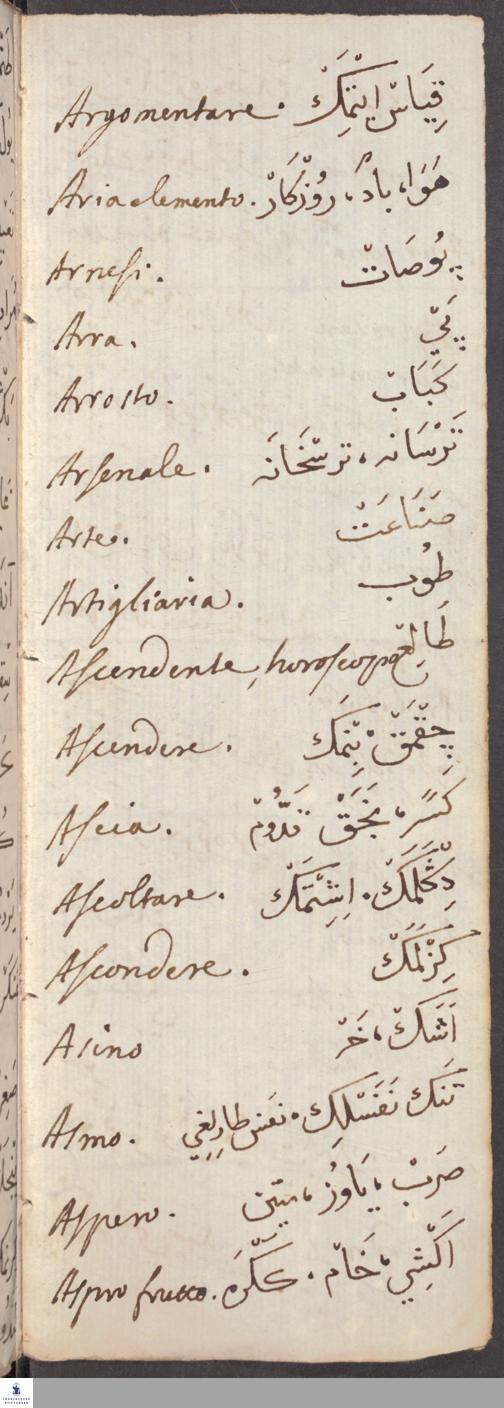 Argomentare. قِيَاسْ اِيتْمَكْ
Aria elemento. هَوَا، بادْ، رُوزْكَارْ
Arnesi. پُوصَاتْ
Arra. پَيْ
Arrosto. كَبَابْ
Arsenale. تَرْسَانَه، ترسْخَانَه
Arte. صَنَاعَتْ
Artigliaria. طُوب
Ascendente, horoscopo طَالِعْ
Ascendere. چِقْمَقْ، بِنْمَكْ
Ascia. كَسَرْ، نَجَقْ قَدُّومْ
Ascoltare. دِكْلَمَكْ. اِشِتْمَكْ
Ascondere. كِزْلَمَكْ
Asino اَشَكْ، خَرْ
Asmo. تَنَكْ نَفَسْلِكْ. نفَس طارلِغِي
Aspero. صَرَبْ، يَاوُزْ،
Aspro frutto. اَكْشِي، خَامْ.